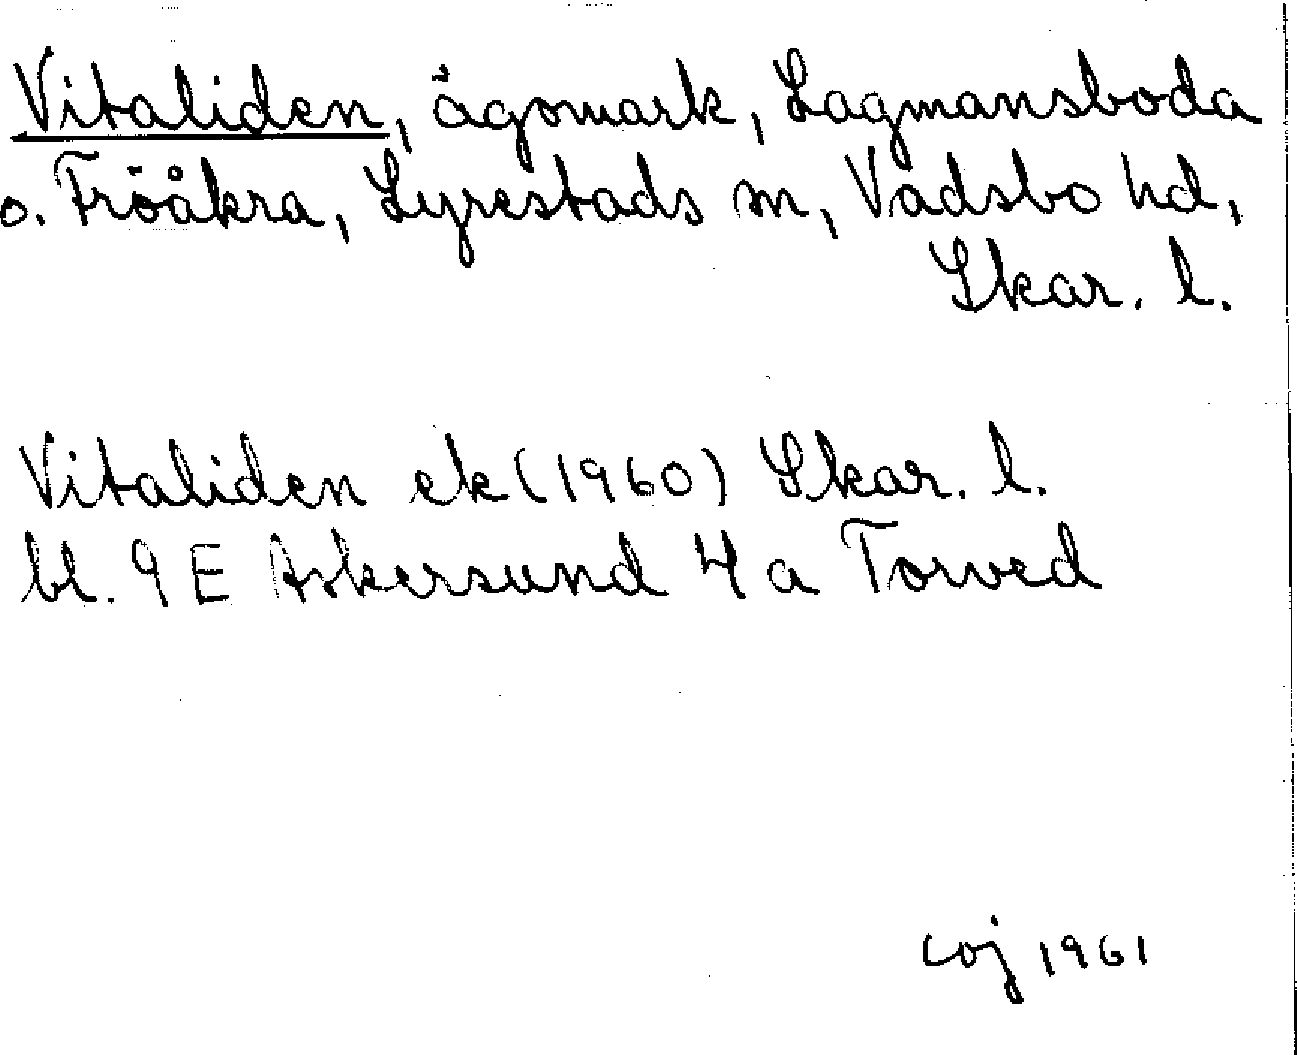 Vitaliden, ägomark, Lagmansboda
o. Fröåkra, Lyrestads sn, Vadsbo hd,
Skar. l.
Vitaliden ek (1960) Skar. l.
bl. 9 E Askersund 4 a Torved
coj 1961